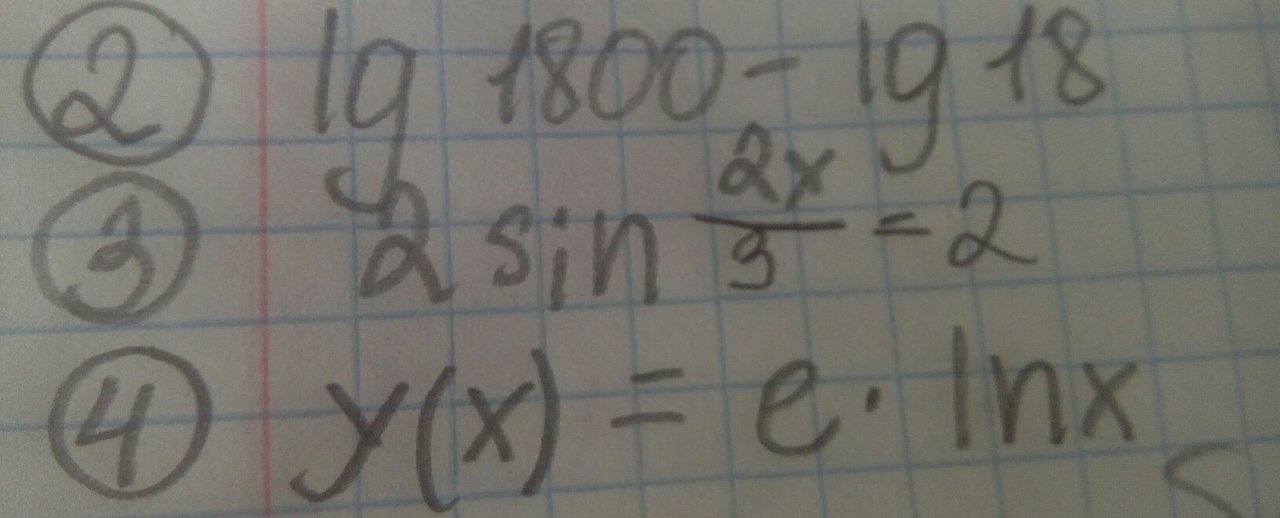 ② lg 1800 - lg 18
③ 2 sin 2x/3 = 2
④ y(x) = e · lnx